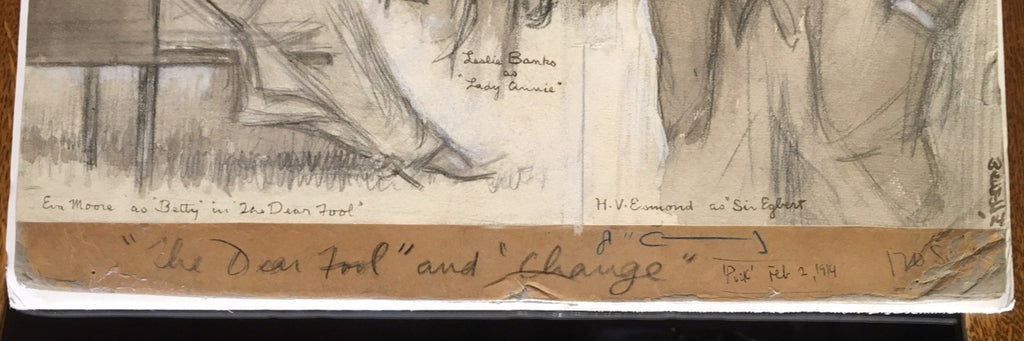 Leslie Banks
as
"Lady Annie"
Eva Moore as "Betty" in "The Dear Fool"
H.V. Esmond as "Sir Egbert"
8"
"The Dear Fool" and "Change"
'Pick' Feb 2, 1914